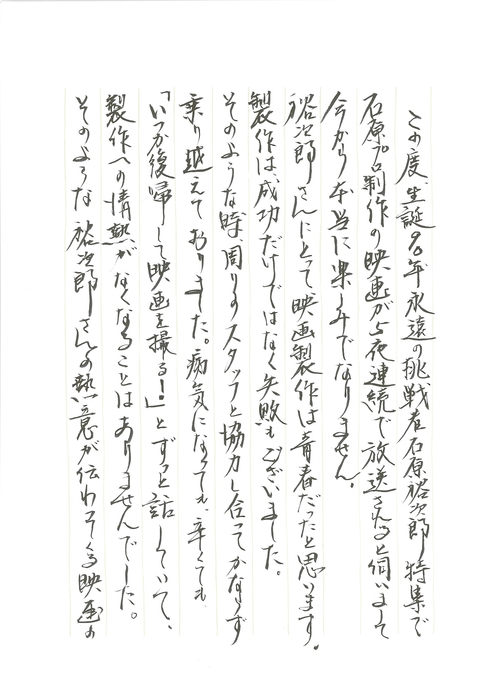 この度、生誕90年 永遠の挑戦者 石原裕次郎 特集で
石原プロ制作の映画が5夜連続で放送されると伺いまして
今から本当に楽しみでなりません。
裕次郎さんにとって映画製作は青春だったと思います。
製作は、成功だけではなく失敗もございました。
そのような時、周りのスタッフと協力し合ってかならず
乗り越えておりました。病気になっても、辛くても
「いつか復帰して映画を撮る!」とずっと話していて、
製作への情熱がなくなることはありませんでした。
そのような裕次郎さんの熱意が伝わってくる映画の